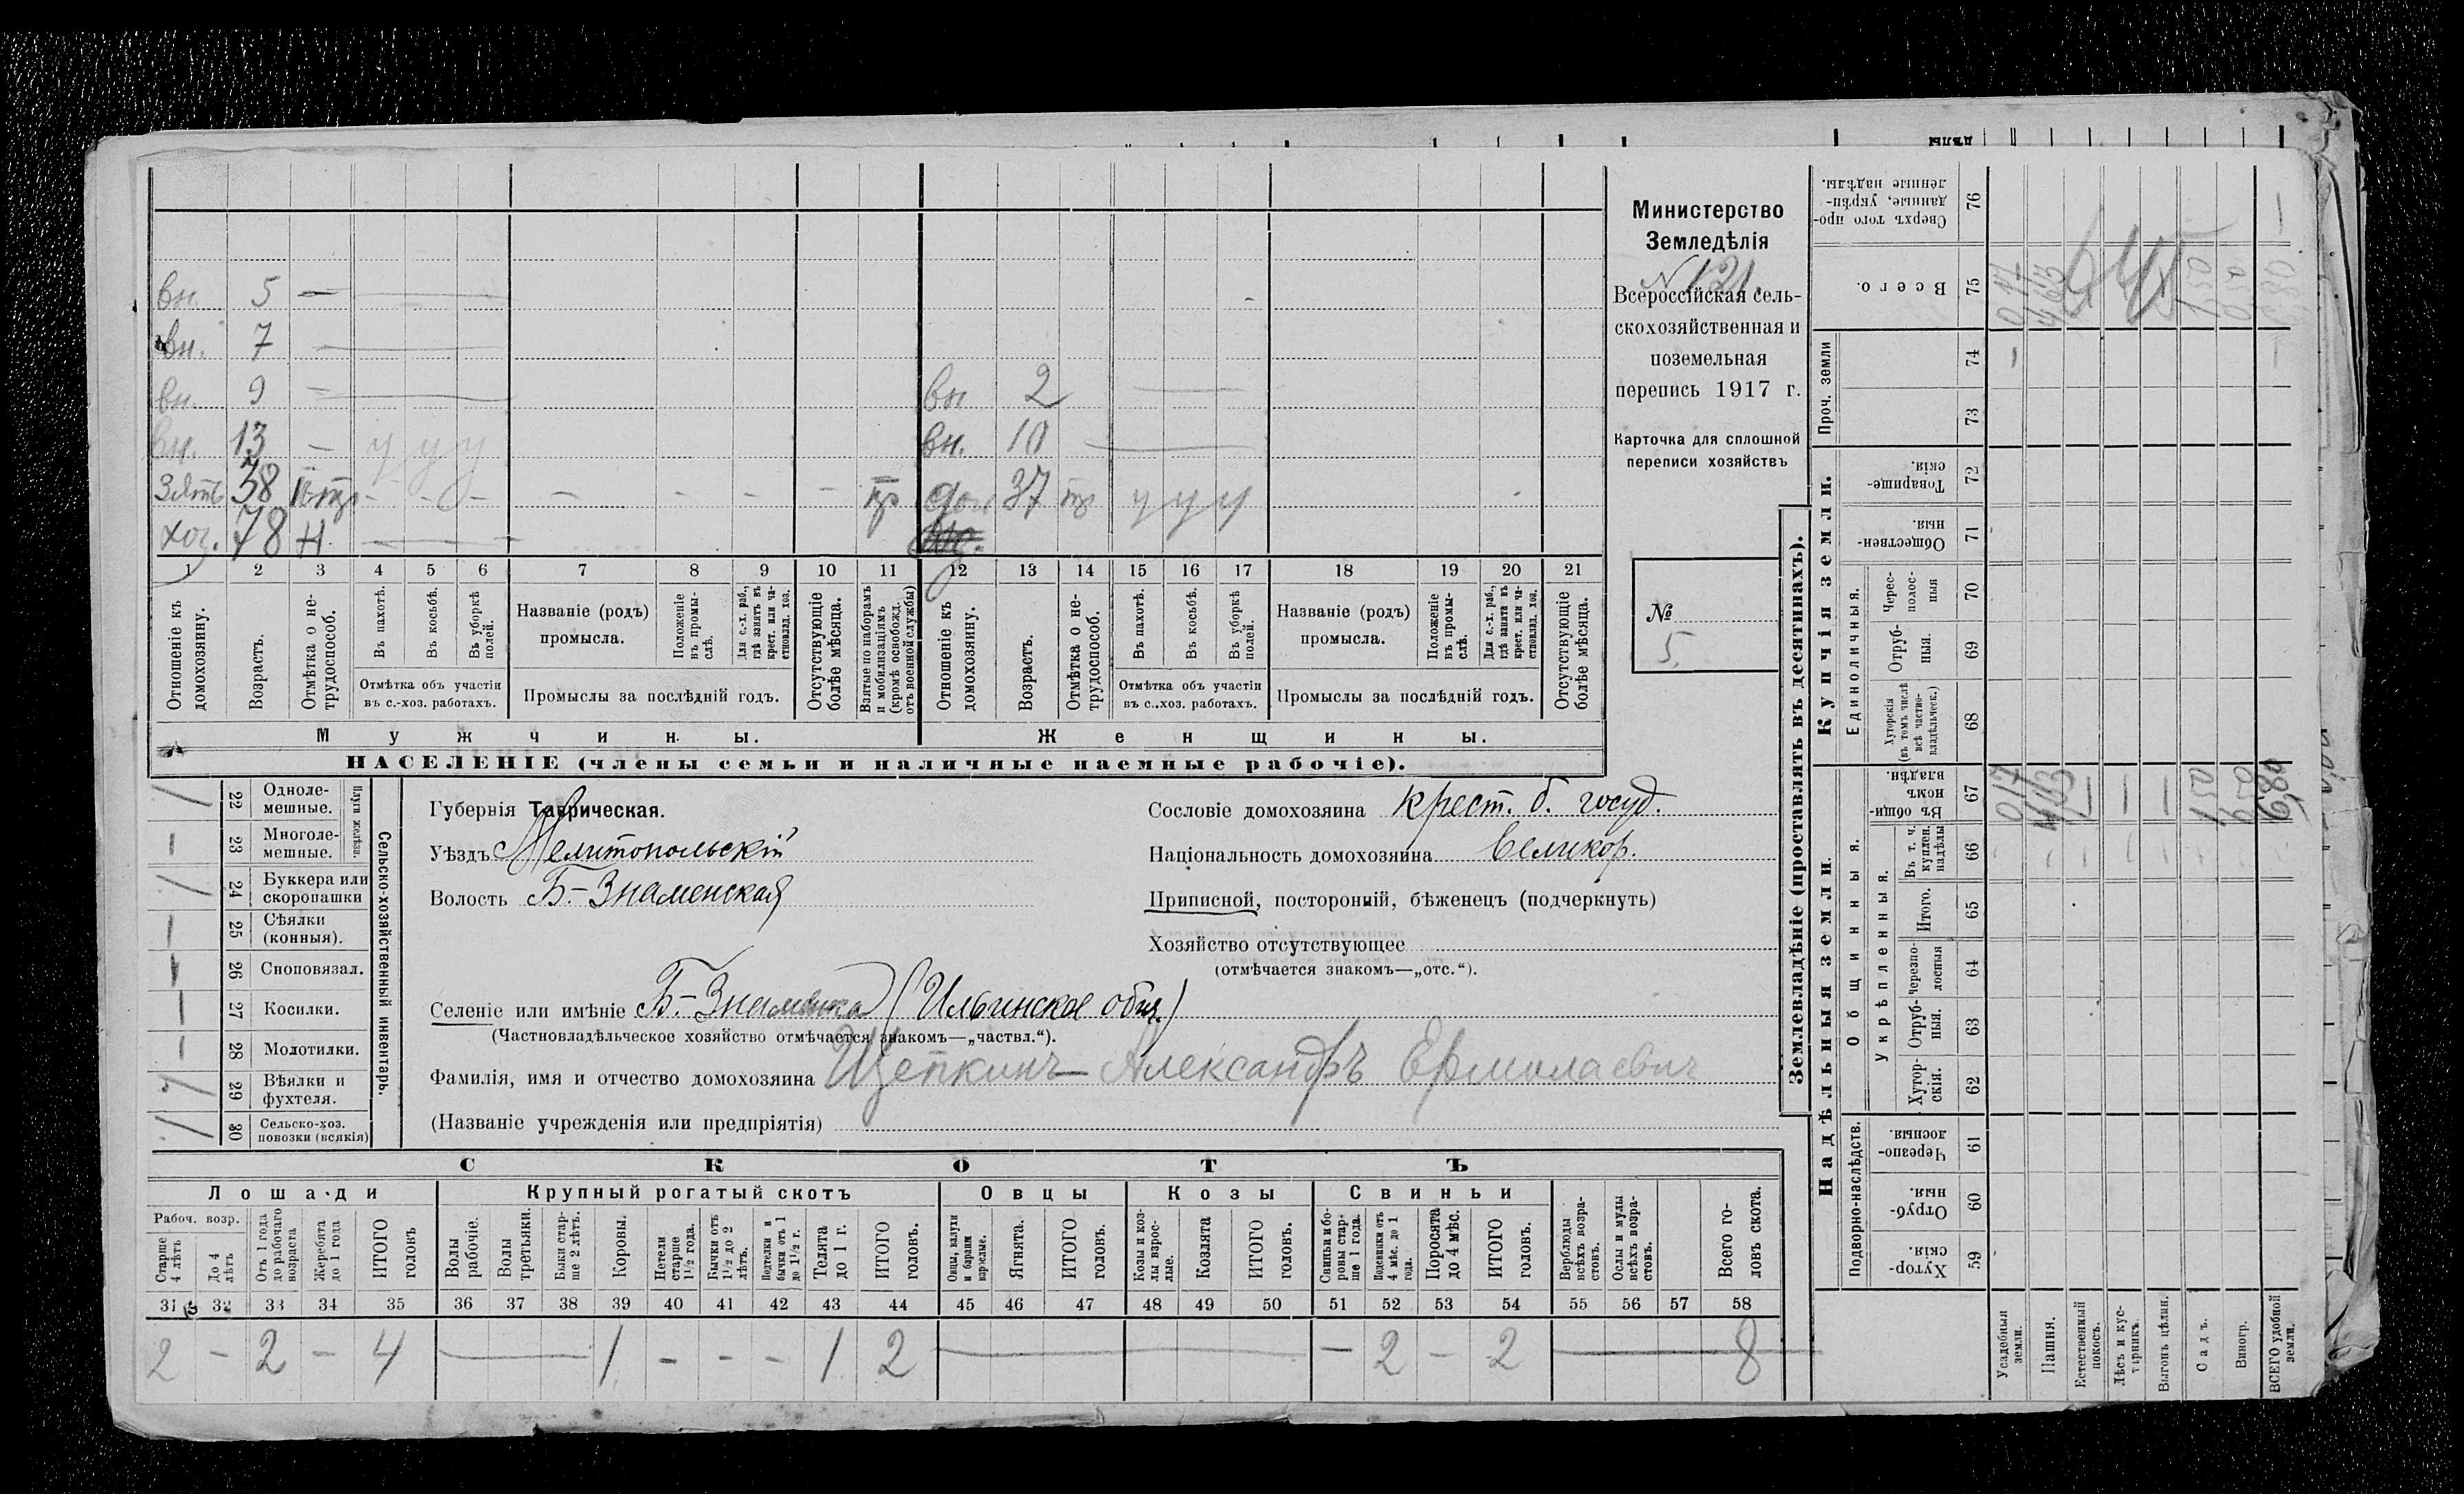 вн. 5 —
вн. 7 —
вн. 9 — вн 2 —
вн. 13 — у у у вн. 10 —
Зять 38 - - - - - - - доч 37 у у у
хоз. 78 н —
1 2 3 4 5 6 7 8 9 10 11 12 13 14 15 16 17 18 19 20 21
Отношеніе къ домохозяину.
Возрастъ.
Отмѣтка о не-трудоспособ.
Въ пахотѣ.
Въ косьбѣ.
Въ уборкѣ полей.
Отмѣтка объ участіи въ с.-хоз. работахъ.
Названіе (родъ) промысла.
Положеніе въ промы-слѣ.
Для с.-х. раб., гдѣ занятъ въ крест. или ча-стновлад. хоз.
Промыслы за послѣдній годъ.
Отсутствующіе болѣе мѣсяца.
Взятые по наборамъ и мобилизаціямъ (кромѣ освобожд. отъ военной службы)
Отношеніе къ домохозяину.
Возрастъ.
Отмѣтка о не-трудоспособ.
Въ пахотѣ.
Въ косьбѣ.
Въ уборкѣ полей.
Отмѣтка объ участіи въ с.-хоз. работахъ.
Названіе (родъ) промысла.
Положеніе въ промы-слѣ.
Для с.-х. раб., гдѣ занята въ крест. или ча-стновлад. хоз.
Промыслы за послѣдній годъ.
Отсутствующіе болѣе мѣсяца.
Мужчины.
Женщины.
НАСЕЛЕНІЕ (члены семьи и наличные наемные рабочіе).
Министерство
Земледѣлія
N 121.
Всероссійская сель-
скохозяйственная и
поземельная
перепись 1917 г.
Карточка для сплошной
переписи хозяйствъ
№
5.
Сельско-хозяйственный инвентарь.
Плуги желѣзн.
/ 22 Одноле-мешные.
— 23 Многоле-мешные.
/ 24 Буккера или скоропашки
— 25 Сѣялки (конныя).
— 26 Сноповязал.
— 27 Косилки.
— 28 Молотилки.
29 Вѣялки и фухтеля.
30 Сельско-хоз. повозки (всякія)
Губернія Таврическая.
Уѣздъ Мелитопольскій
Волость Б-Знаменская
Селеніе или имѣніе Б-Знаменка (Ильинское общ.)
(Частновладѣльческое хозяйство отмѣчается знакомъ—„частвл.“).
Фамилія, имя и отчество домохозяина Щепкинъ Александръ Ермолаевич
(Названіе учрежденія или предпріятія)
Сословіе домохозяина Крест. б. госуд.
Національность домохозяина Великор.
Приписной, посторонній, бѣженецъ (подчеркнуть)
Хозяйство отсутствующее
(отмѣчается знакомъ—„отс.“).
СКОТЪ
Лошади
Крупный рогатый скотъ
Овцы
Козы
Свиньи
Рабоч. возр.
Старше 4 лѣтъ
До 4 лѣтъ
Отъ 1 года до рабочаго возраста
Жеребята до 1 года
ИТОГО головъ
Волы рабочіе.
Волы третьяки.
Быки стар-ше 2 лѣтъ.
Коровы.
Нетели старше 1½ года.
Бычки отъ 1½ до 2 лѣтъ.
Подтелки и бычки отъ 1 до 1½ г.
Телята до 1 г.
ИТОГО головъ.
Овцы, валухи и бараны взрослые.
Ягнята.
ИТОГО головъ.
Козы и коз-лы взрос-лые.
Козлята
ИТОГО головъ.
Свиньи и бо-ровы стар-ше 1 года.
Подсвинки отъ 4 мѣс. до 1 года.
Поросята до 4 мѣс.
ИТОГО головъ.
Верблюды всѣхъ возра-стовъ.
Ослы и мулы всѣхъ возра-стовъ.
Всего го-ловъ скота.
31 32 33 34 35 36 37 38 39 40 41 42 43 44 45 46 47 48 49 50 51 52 53 54 55 56 57 58
2 - 2 - 4 — 1 - - - 1 2 — — 2 - 2 — 8
Землевладѣніе (проставлять въ десятинахъ).
Надѣльныя земли.
Купчія земли.
Проч. земли
Подворно-наслѣдств.
Общинныя.
Укрѣпленныя.
Единоличныя.
Сверхъ того про-данные, укрѣп-ленные надѣлы. 76
Всего. 75
74
73
Товарище-скія. 72
Обществен-ныя. 71
Черес-полос-ныя 70
Отруб-ныя. 69
Хуторскія (въ томъ числѣ всѣ частно-владѣльческ.) 68
Въ общин-номъ владѣн. 67
Въ т. ч. куплен. надѣлы 66
Итого. 65
Черезпо-лосныя 64
Отруб-ныя. 63
Хутор-скія. 62
Черезпо-лосныя. 61
Отруб-ныя. 60
Хутор-скія. 59
Усадебныя земли.
Пашня.
Естественный покосъ.
Лѣсъ и кус-тарникъ.
Выгонъ цѣлин.
Садъ.
Виногр.
ВСЕГО удобной земли.